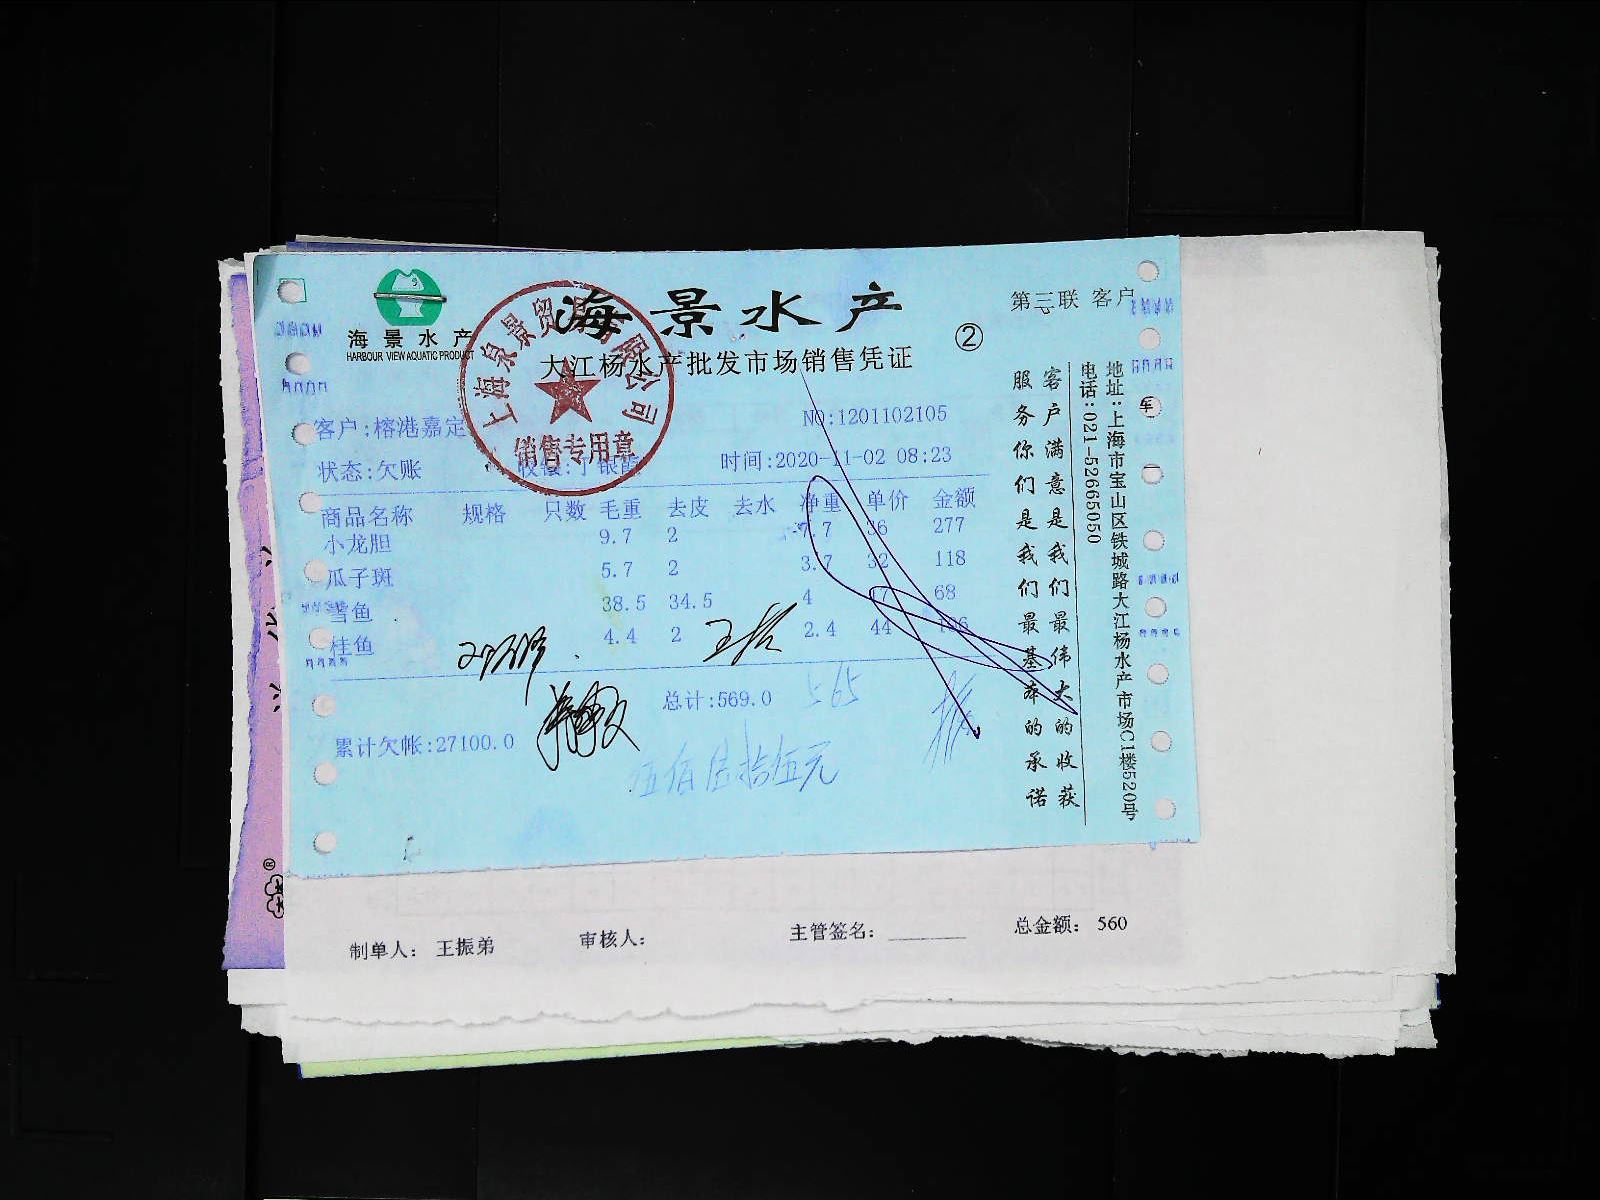 海景水产
HARBOUR VIEW AQUATIC PRODUCT
海景水产
大江杨水产批发市场销售凭证
②
第三联 客户
上海泉景贸易有限公司
销售专用章
客户:榕港嘉定
NO:1201102105
状态:欠账
时间:2020-11-02 08:23
商品名称 规格 只数 毛重 去皮 去水 净重 单价 金额
小龙胆 9.7 2 7.7 36 277
瓜子斑 5.7 2 3.7 32 118
雪鱼 38.5 34.5 4 17 68
桂鱼 4.4 2 2.4 44 106
总计:569.0
565
累计欠帐:27100.0
伍佰陆拾伍元
客户满意是我们最伟大的收获
服务你们是我们最基本的承诺
地址:上海市宝山区铁城路大江杨水产市场C1楼520号
电话:021-52665050
车
制单人: 王振弟
审核人:
主管签名:
总金额: 560